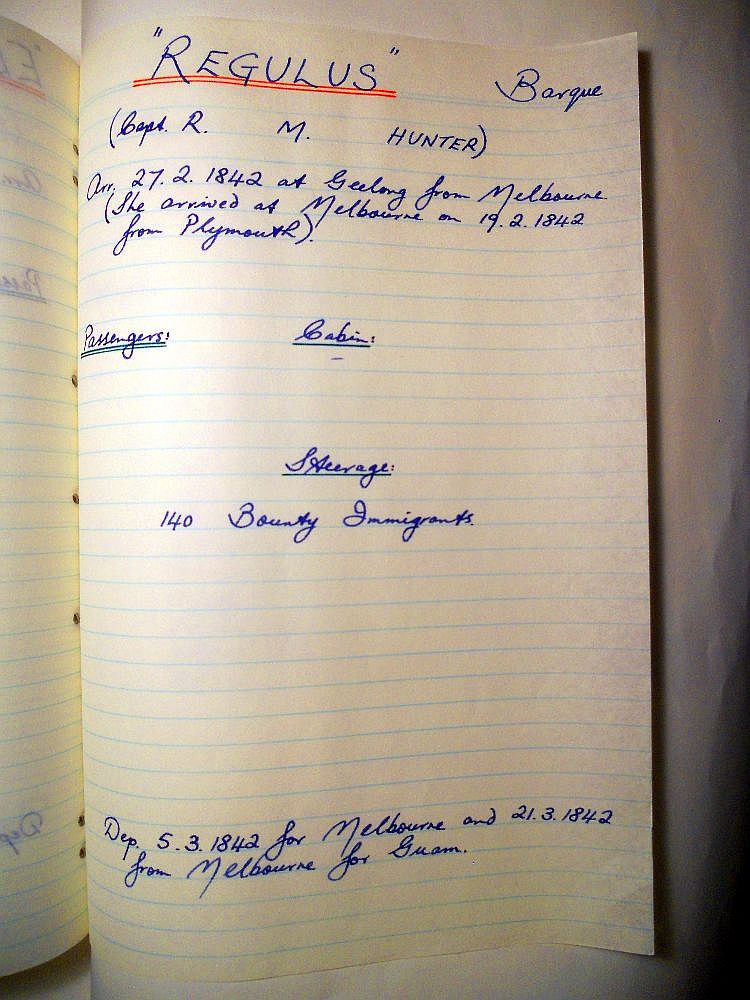 "REGULUS" Barque
(Capt. R. M. HUNTER)
Arr. 27.2.1842 at Geelong from Melbourne
(She arrived at Melbourne on 19.2.1842
from Plymouth).
Passengers: Cabin:
–
Steerage:
140 Bounty Immigrants.
Dep. 5.3.1842 for Melbourne and 21.3.1842
from Melbourne for Guam.